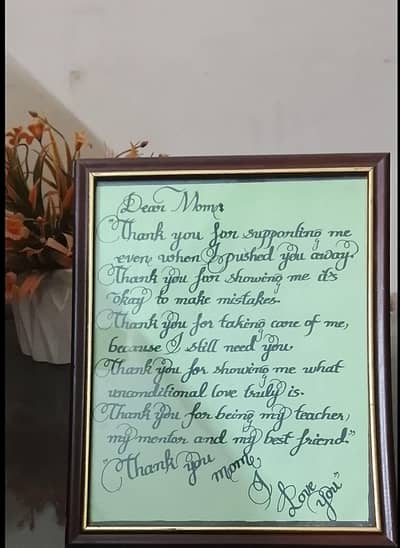 Dear Mom,
"Thank you for supporting me
even when I pushed you away.
Thank you for showing me it's
okay to make mistakes.
Thank you for taking care of me,
because I still need you.
Thank you for showing me what
unconditional love truly is.
Thank you for being my teacher,
my mentor and my best friend."
"Thank you mom,
I Love you"